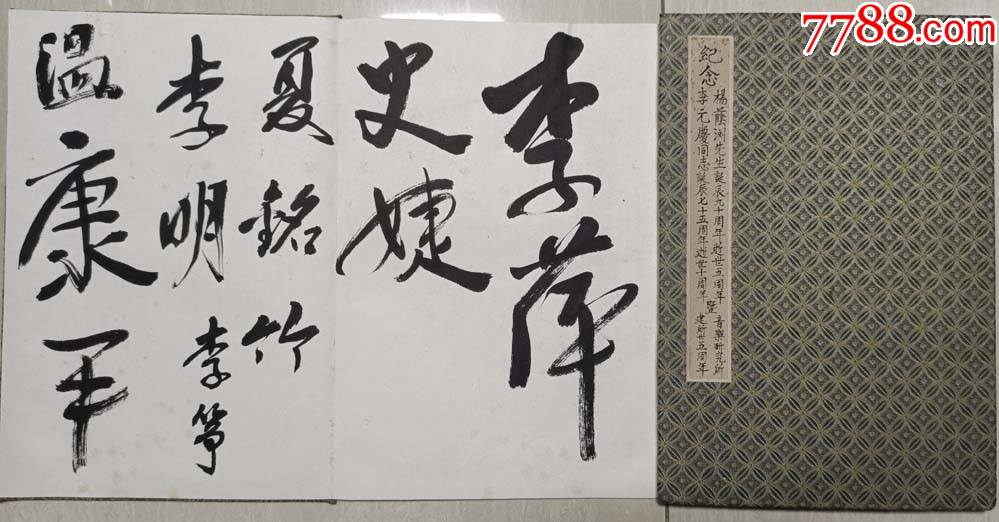 7788.com
紀念
楊蔭浏先生誕辰九十周年逝世五周年
李元慶同志誕辰七十五周年逝世十周年
暨
音樂研究所
建所卅五周年
李
史婕
夏銘竹
李明
李筝
温康